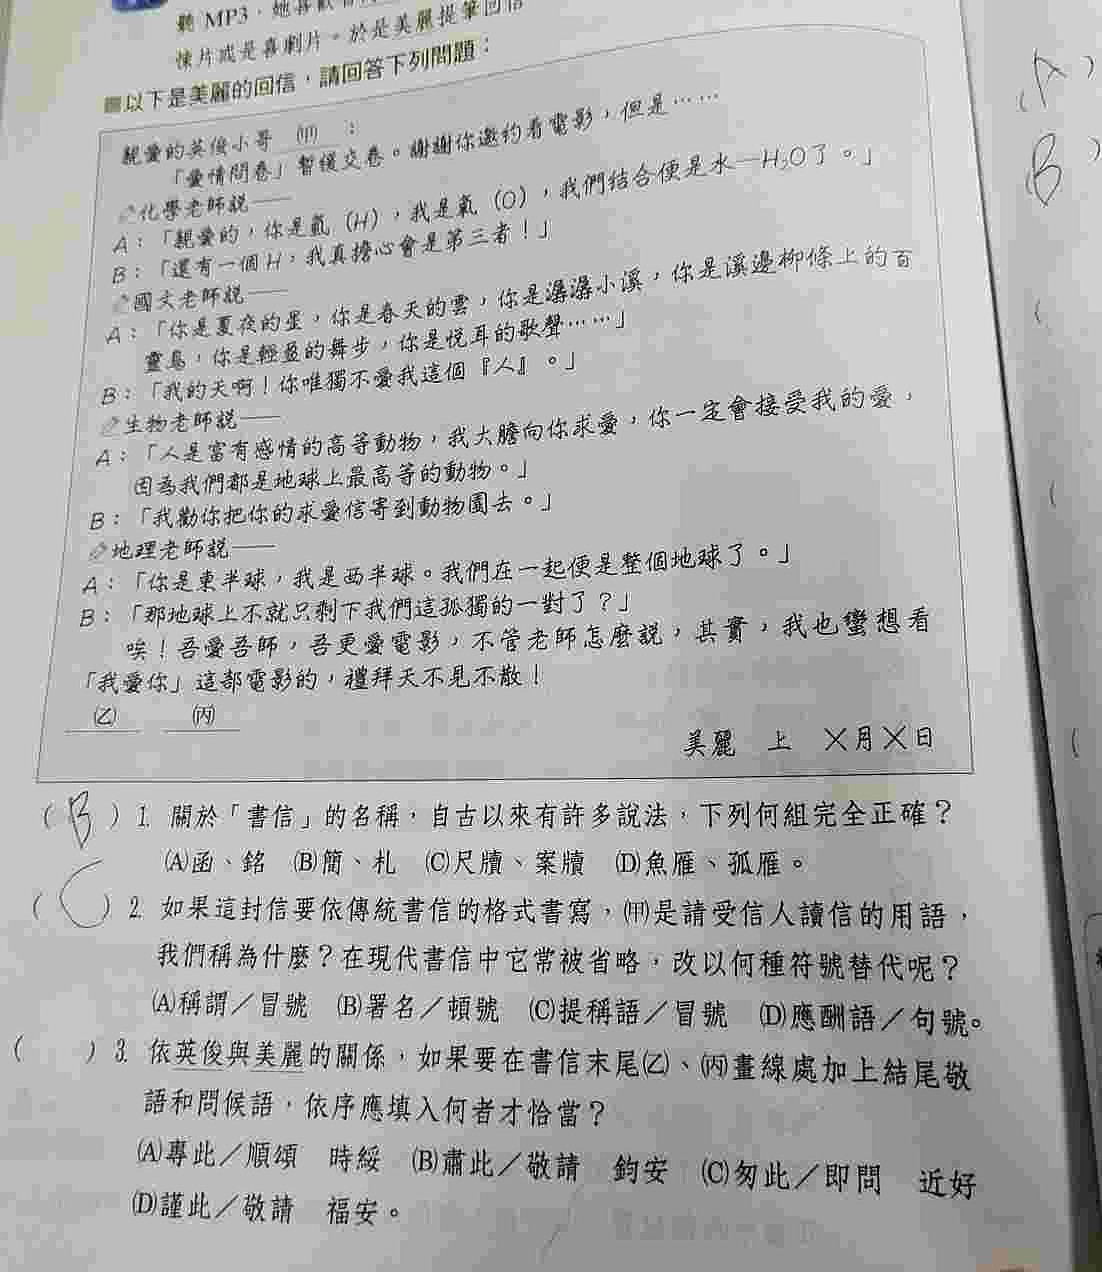 聽 MP3，她喜歡
悚片或是喜劇片。於是美麗提筆回信
以下是美麗的回信，請回答下列問題：
親愛的英俊小哥　㈠甲　：
「愛情問卷」暫緩交卷。謝謝你邀約看電影，但是……
化學老師說——
A：「親愛的，你是氫（H），我是氧（O），我們結合便是水—H₂O了。」
B：「還有一個H，我真擔心會是第三者！」
國文老師說——
A：「你是夏夜的星，你是春天的雲，你是潺潺小溪，你是溪邊柳條上的百
靈鳥，你是輕盈的舞步，你是悅耳的歌聲……」
B：「我的天啊！你唯獨不愛我這個『人』。」
生物老師說——
A：「人是富有感情的高等動物，我大膽向你求愛，你一定會接受我的愛，
因為我們都是地球上最高等的動物。」
B：「我勸你把你的求愛信寄到動物園去。」
地理老師說——
A：「你是東半球，我是西半球。我們在一起便是整個地球了。」
B：「那地球上不就只剩下我們這孤獨的一對了？」
唉！吾愛吾師，吾更愛電影，不管老師怎麼說，其實，我也蠻想看
「我愛你」這部電影的，禮拜天不見不散！
(乙)　(丙)
美麗　上　×月×日
（B）1. 關於「書信」的名稱，自古以來有許多說法，下列何組完全正確？
(A)函、銘　(B)簡、札　(C)尺牘、案牘　(D)魚雁、孤雁。
（C）2. 如果這封信要依傳統書信的格式書寫，(甲)是請受信人讀信的用語，
我們稱為什麼？在現代書信中它常被省略，改以何種符號替代呢？
(A)稱謂／冒號　(B)署名／頓號　(C)提稱語／冒號　(D)應酬語／句號。
（　）3. 依英俊與美麗的關係，如果要在書信末尾(乙)、(丙)畫線處加上結尾敬
語和問候語，依序應填入何者才恰當？
(A)專此／順頌　時綏　(B)肅此／敬請　鈞安　(C)匆此／即問　近好
(D)謹此／敬請　福安。
(A)
B